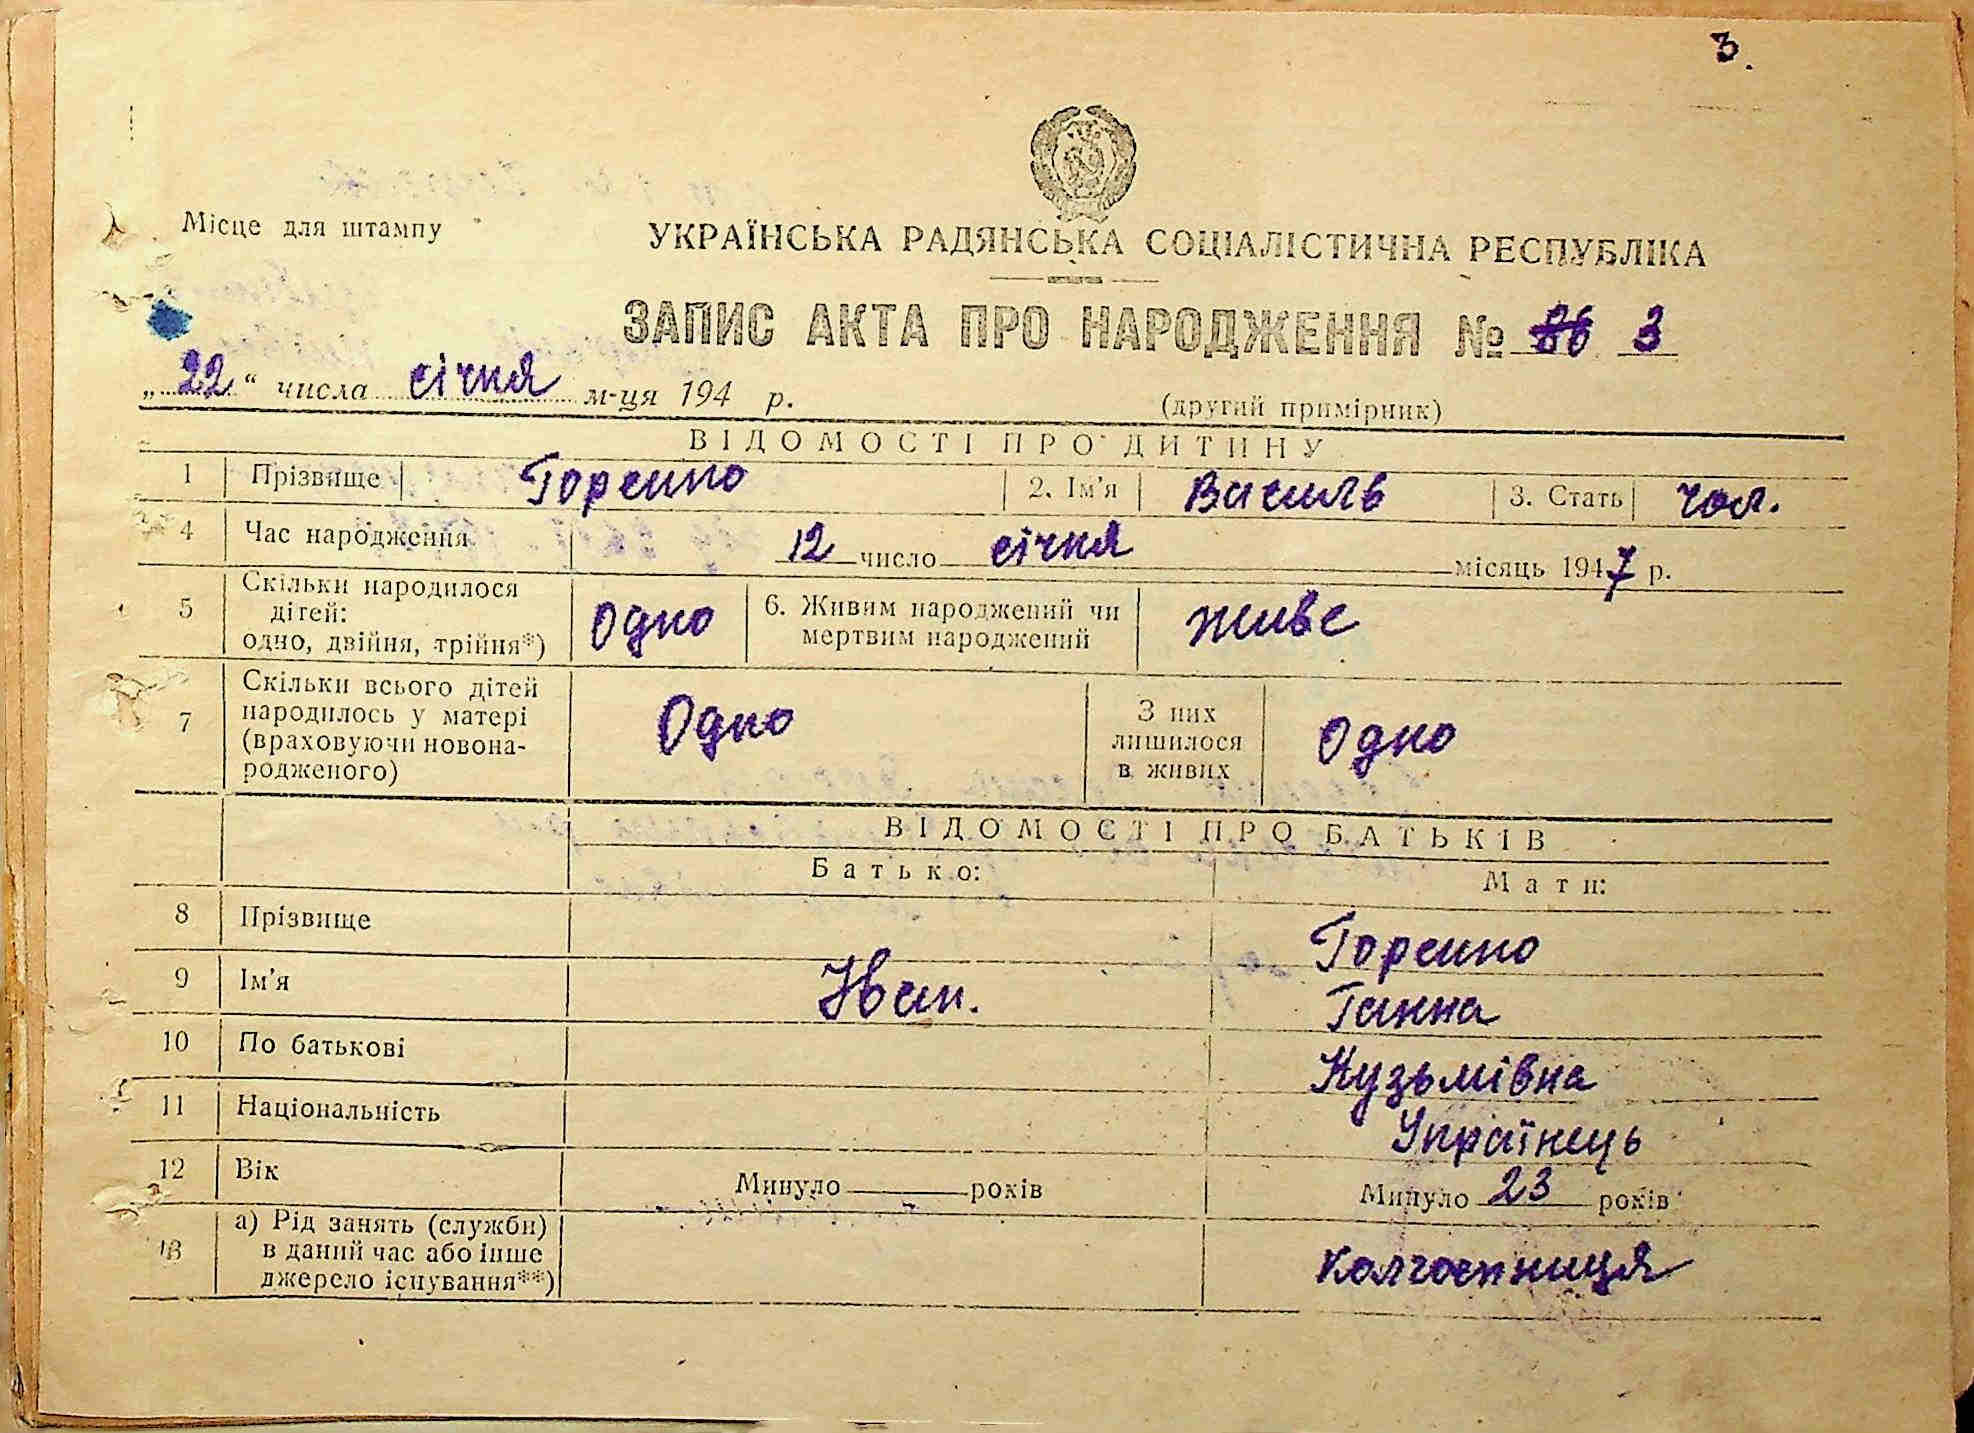 3.
Місце для штампу
УКРАЇНСЬКА РАДЯНСЬКА СОЦІАЛІСТИЧНА РЕСПУБЛІКА
ЗАПИС АКТА ПРО НАРОДЖЕННЯ № 86 3
„22“ числа січня м-ця 194 р.
(другий примірник)
ВІДОМОСТІ ПРО ДИТИНУ
1 Прізвище Горенко 2. Ім'я Василь 3. Стать чол.
4 Час народження 12 число січня місяць 1947 р.
5 Скільки народилося дітей: одно, двійня, трійня*) Одно 6. Живим народжений чи мертвим народжений живе
7 Скільки всього дітей народилось у матері (враховуючи новонародженого) Одно З них лишилося в живих Одно
ВІДОМОСТІ ПРО БАТЬКІВ
Батько: Мати:
8 Прізвище Горенко
9 Ім'я Іван. Ганна
10 По батькові Кузьмівна
11 Національність Українець
12 Вік Минуло років Минуло 23 років
13 а) Рід занять (служби) в даний час або інше джерело існування**) Колгоспниця